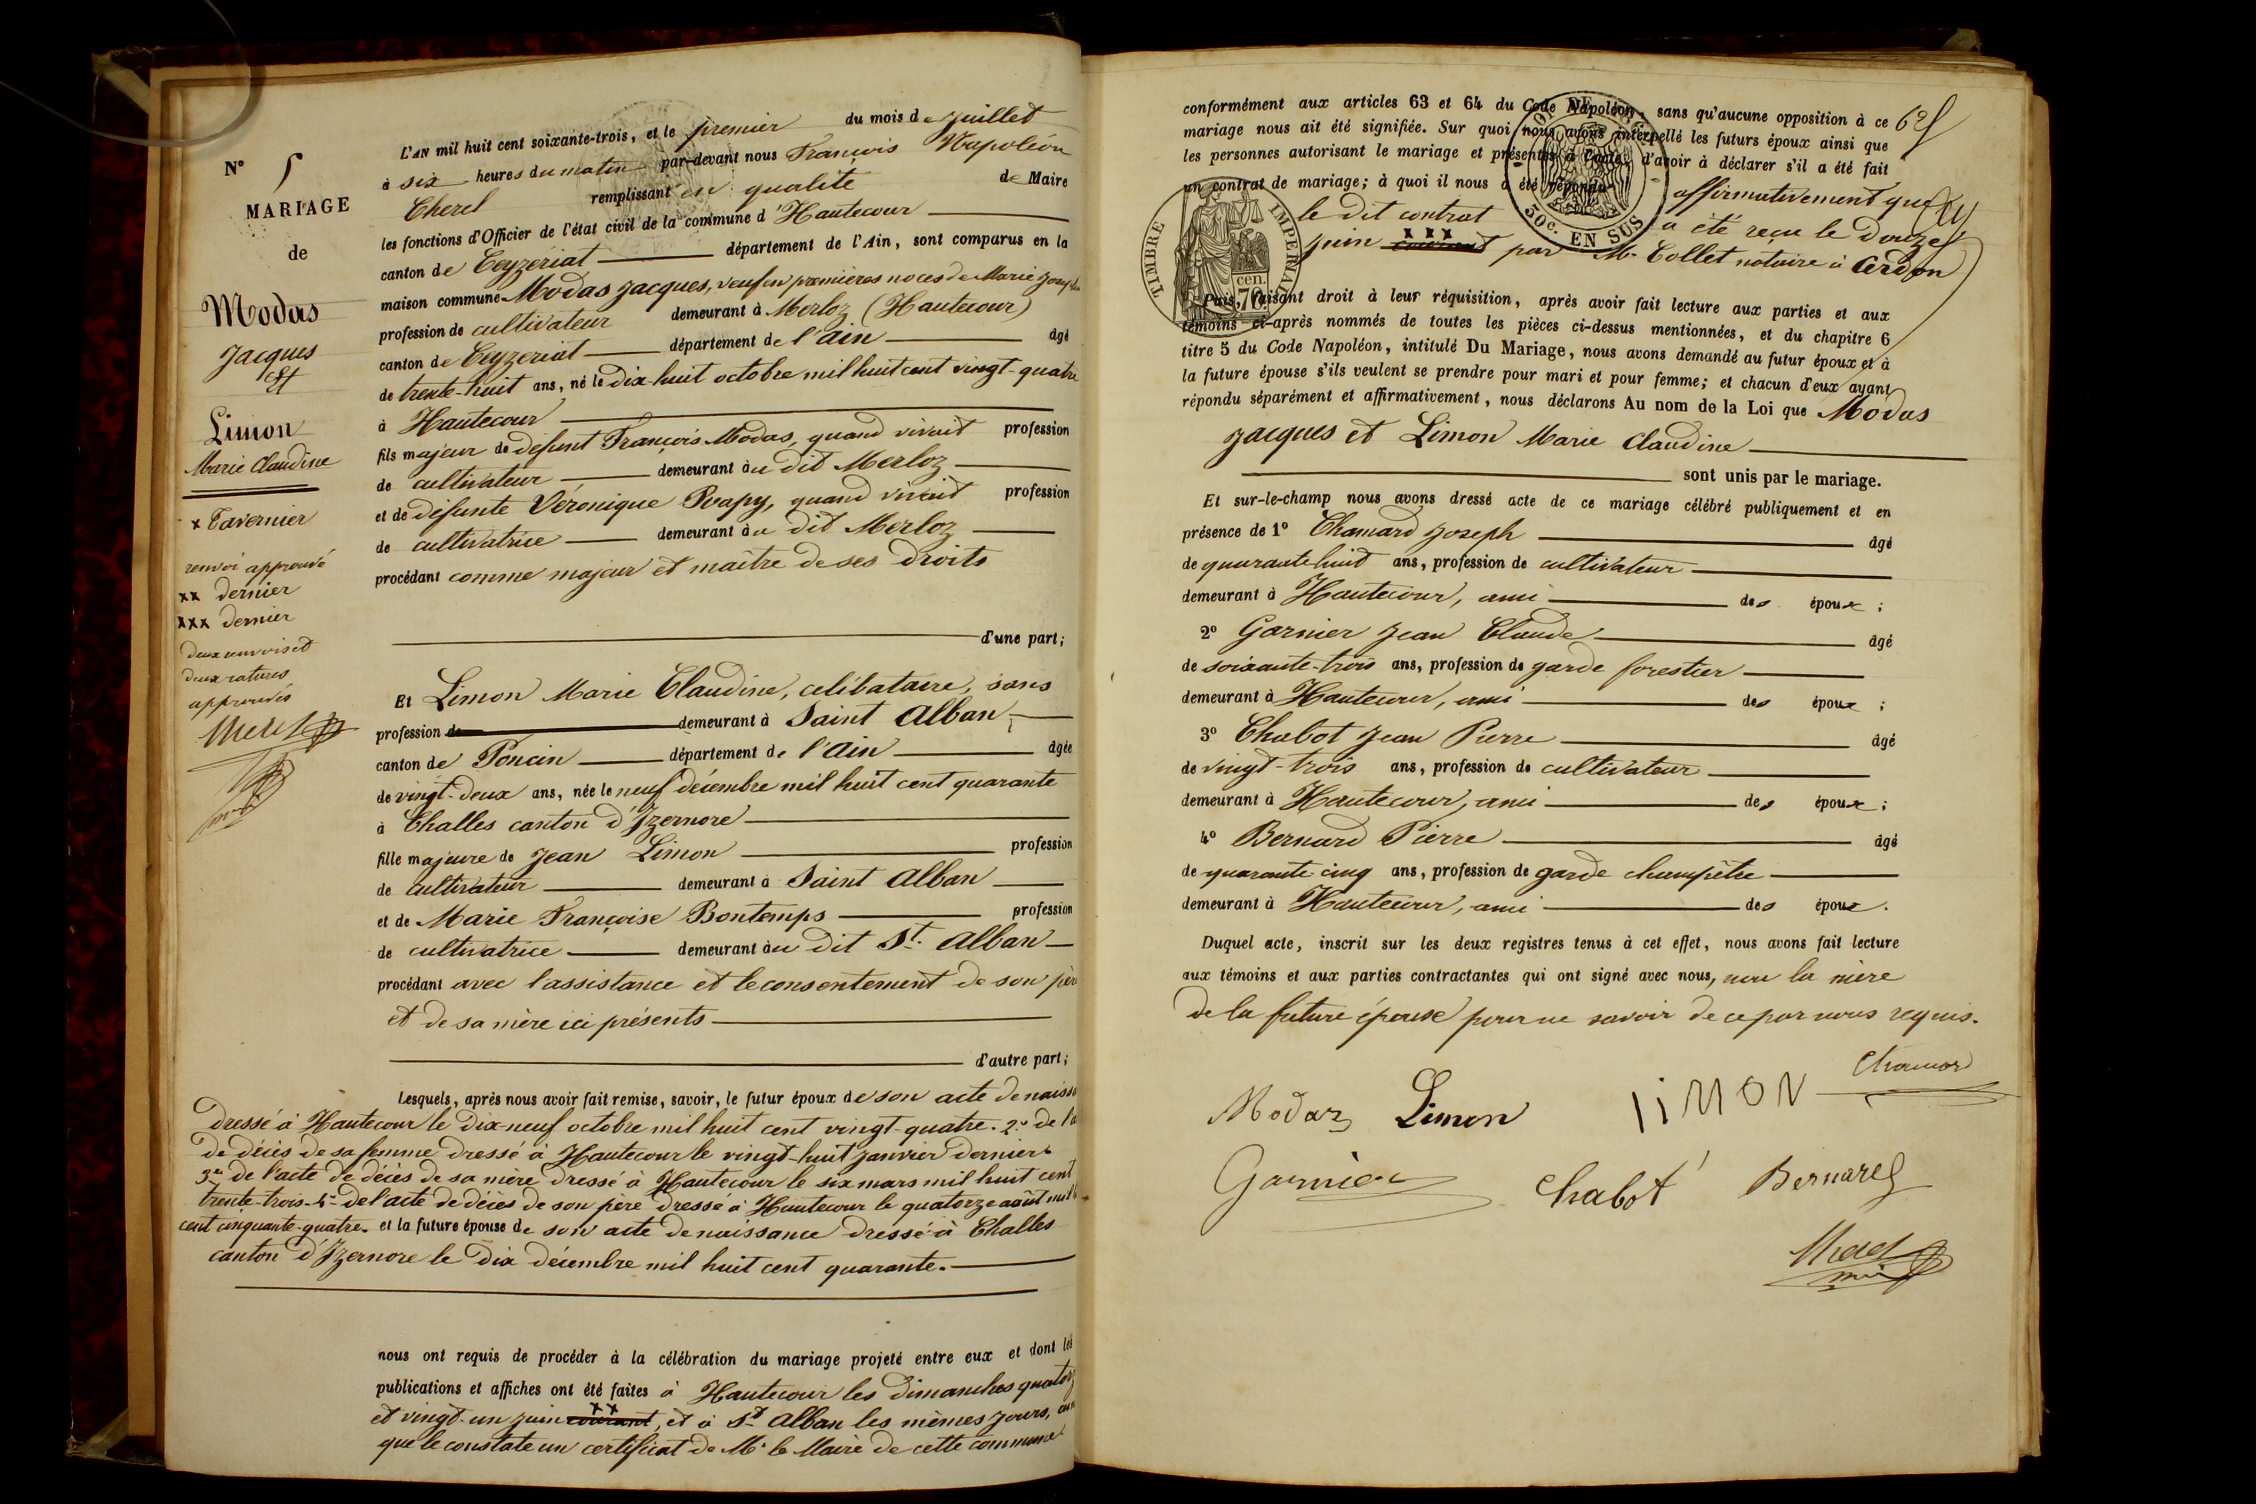 N° 5
MARIAGE
de
Modas
Jacques
Et
Limon
Marie Claudine
x Tavernier
renvoi approuvé
xx dernier
xxx dernier
deux renvois et
deux ratures
approuvés
L'AN mil huit cent soixante-trois, et le premier du mois de Juillet
à six heures du matin par-devant nous François Napoléon
Cherel remplissant en qualité de Maire
les fonctions d'Officier de l'état civil de la commune d'Hautecour
canton de Ceyzériat département de l'Ain, sont comparus en la
maison commune Modas Jacques, veuf en premières noces de Marie Josephte
profession de cultivateur demeurant à Merloz (Hautecour)
canton de Ceyzériat département de l'Ain âgé
de trente-huit ans, né le dix-huit octobre mil huit cent vingt-quatre
à Hautecour
fils majeur de défunt François Modas, quand vivait profession
de cultivateur demeurant au dit Merloz
et de défunte Véronique Pvapy, quand vivait profession
de cultivatrice demeurant au dit Merloz
procédant comme majeur et maître de ses droits
d'une part;
Et Limon Marie Claudine, célibataire, sans
profession de demeurant à Saint Alban
canton de Poncin département de l'Ain âgée
de vingt-deux ans, née le neuf décembre mil huit cent quarante
à Challes canton d'Izernore
fille majeure de Jean Limon profession
de cultivateur demeurant à Saint Alban
et de Marie Françoise Bontemps profession
de cultivatrice demeurant au dit St. Alban
procédant avec l'assistance et le consentement de son père
et de sa mère ici présents
d'autre part;
Lesquels, après nous avoir fait remise, savoir, le futur époux de son acte de naiss
dressé à Hautecour le dix-neuf octobre mil huit cent vingt-quatre. 2° de l'a
de décès de sa femme dressé à Hautecour le vingt-huit janvier dernier
3° de l'acte de décès de sa mère dressé à Hautecour le six mars mil huit cent
trente-trois. 4° de l'acte de décès de son père dressé à Hautecour le quatorze août mil h
cent cinquante-quatre. et la future épouse de son acte de naissance dressé à Challes
canton d'Izernore le dix décembre mil huit cent quarante.
nous ont requis de procéder à la célébration du mariage projeté entre eux et dont les
publications et affiches ont été faites à Hautecour les dimanches quatorz
xx
et vingt-un juin courant, et à St Alban les mêmes jours,
que le constate un certificat de Mr. le Maire de cette commune
conformément aux articles 63 et 64 du Code Napoléon, sans qu'aucune opposition à ce
mariage nous ait été signifiée. Sur quoi nous avons interpellé les futurs époux ainsi que
les personnes autorisant le mariage et présentes à l'acte, d'avoir à déclarer s'il a été fait
un contrat de mariage; à quoi il nous a été répondu affirmativement que
le dit contrat a été reçu le douze
xxx
juin courant par Mr. Collet notaire à Cerdon
TIMBRE IMPERIAL
70 cen.
50 c. EN SUS
Puis, faisant droit à leur réquisition, après avoir fait lecture aux parties et aux
témoins ci-après nommés de toutes les pièces ci-dessus mentionnées, et du chapitre 6
titre 5 du Code Napoléon, intitulé Du Mariage, nous avons demandé au futur époux et à
la future épouse s'ils veulent se prendre pour mari et pour femme; et chacun d'eux ayant
répondu séparément et affirmativement, nous déclarons Au nom de la Loi que Modas
Jacques et Limon Marie Claudine
sont unis par le mariage.
Et sur-le-champ nous avons dressé acte de ce mariage célébré publiquement et en
présence de 1° Chamard Joseph âgé
de quarante huit ans, profession de cultivateur
demeurant à Hautecour, ami des époux;
2° Garnier Jean Claude âgé
de soixante-trois ans, profession de garde forestier
demeurant à Hautecour, ami des époux;
3° Chabot Jean Pierre âgé
de vingt-trois ans, profession de cultivateur
demeurant à Hautecour, ami des époux;
4° Bernard Pierre âgé
de quarante cinq ans, profession de garde champêtre
demeurant à Hautecour, ami des époux.
Duquel acte, inscrit sur les deux registres tenus à cet effet, nous avons fait lecture
aux témoins et aux parties contractantes qui ont signé avec nous, non la mère
de la future épouse pour ne savoir de ce par nous requis.
Chamard
Modas Limon liMON
Garnier Chabot Bernard